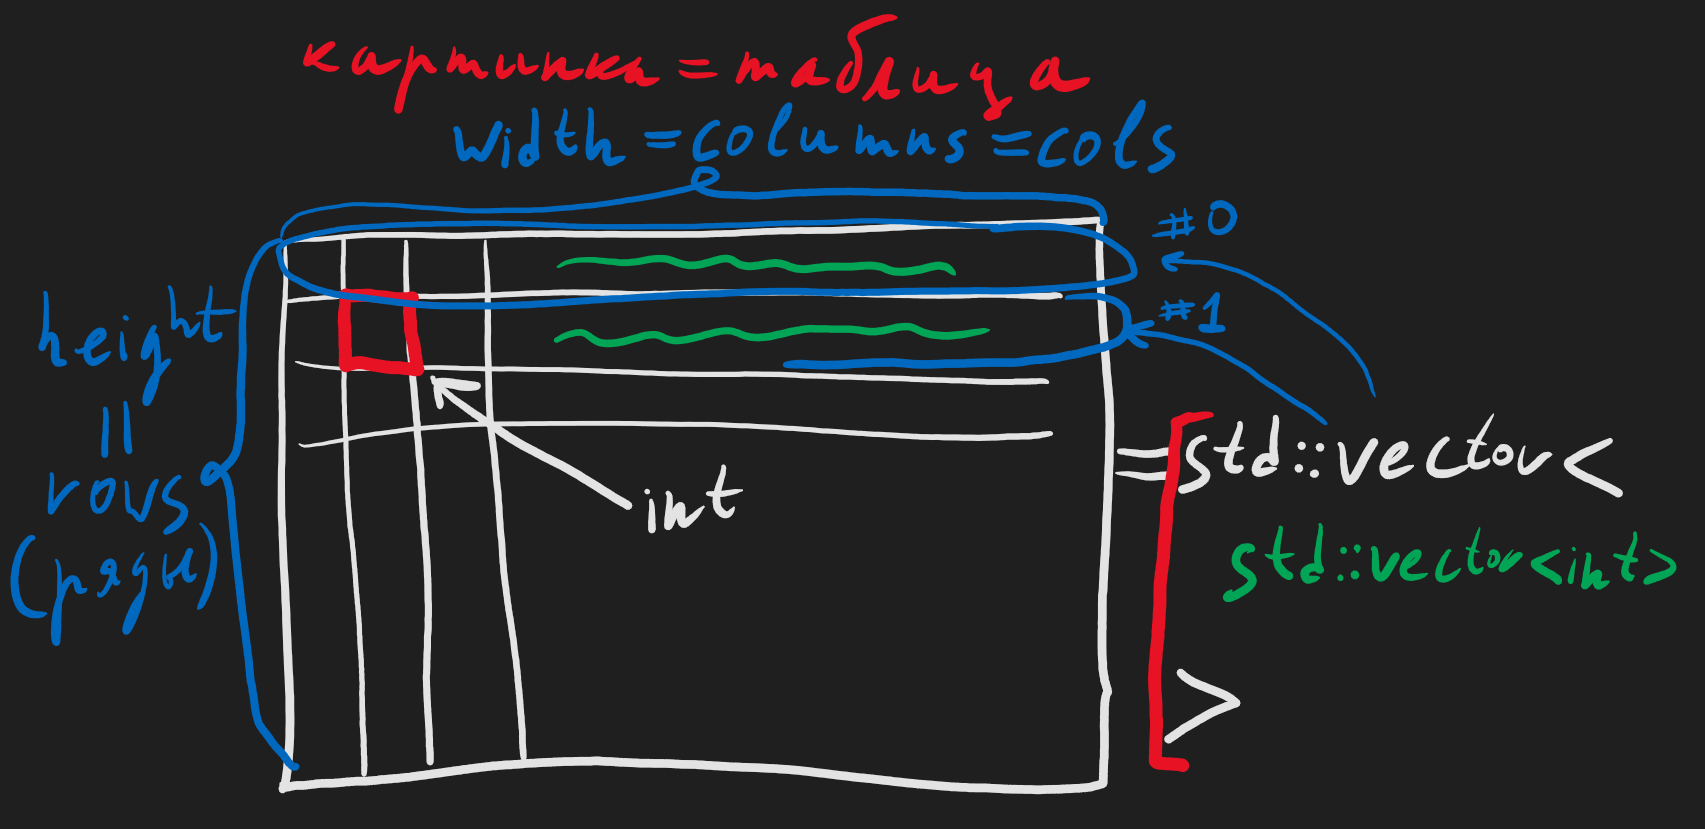 картинка = таблица
width = columns = cols
#0
#1
height
||
rows
(ряды)
int
= std::vector<
std::vector<int>
>